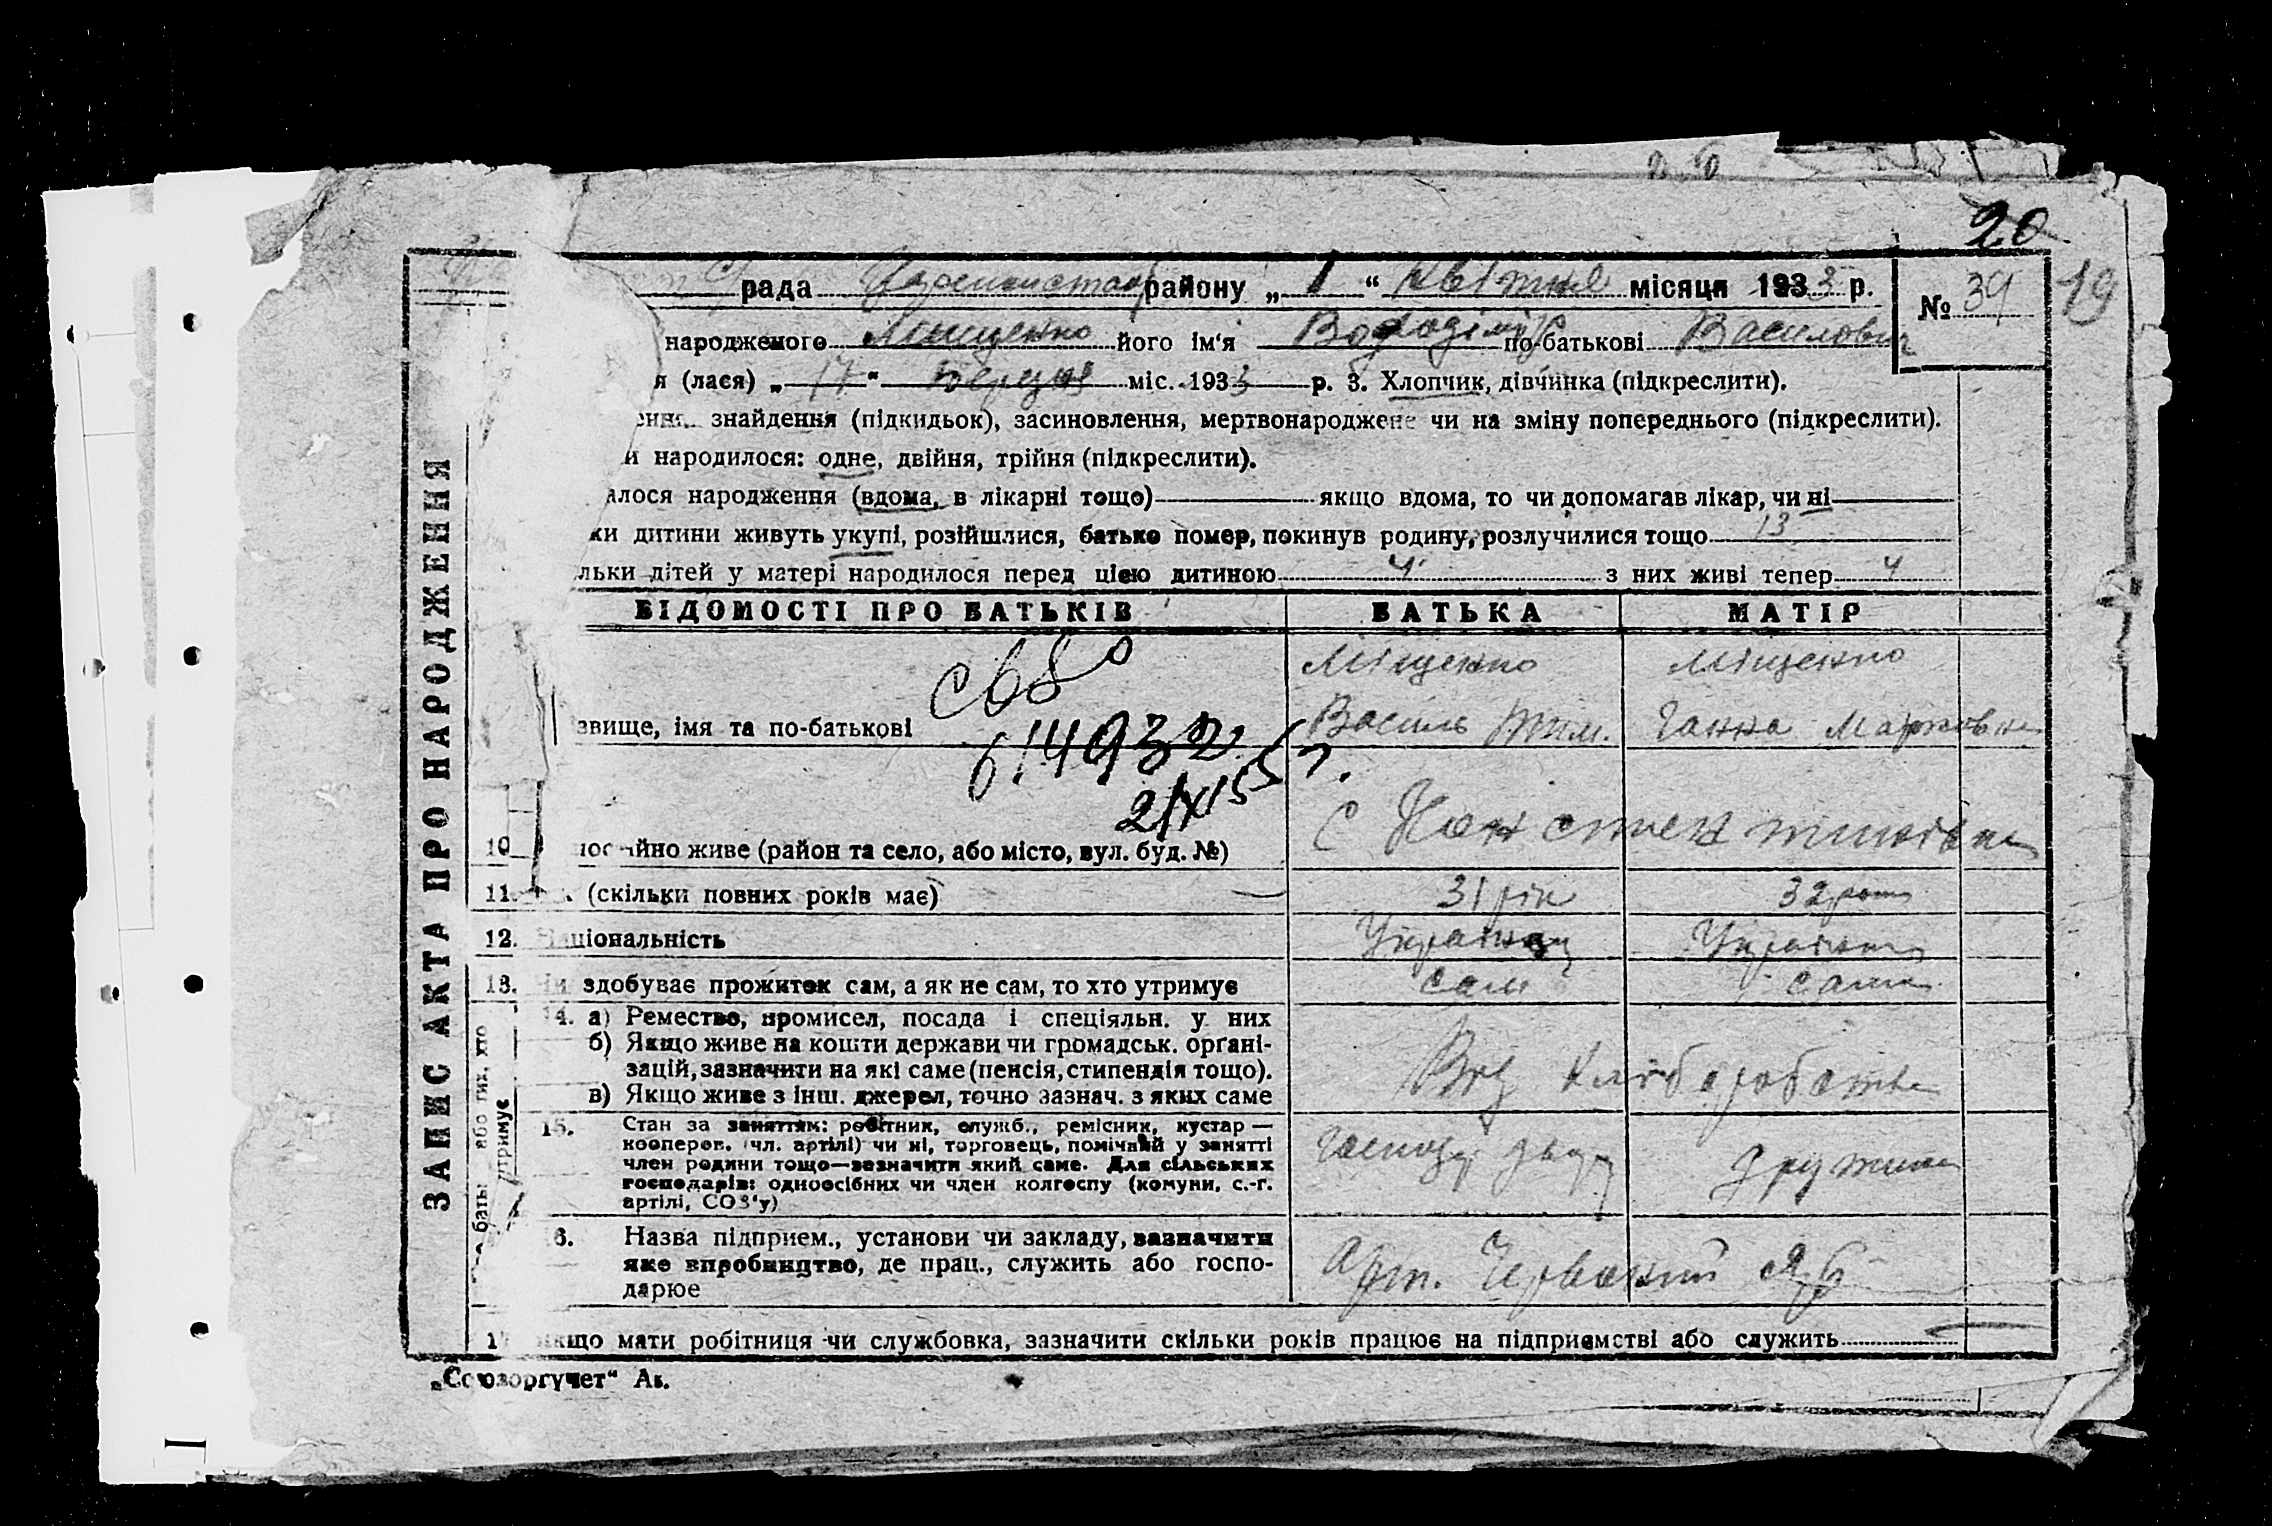 20
рада района „ 1 “ Квітня місяця 1933 р.
№ 39 19
народженого Міщенко його ім'я Володімір по-батькові Василович
я (лася) „ 17 “ Березня міс. 1933 р. 3. Хлопчик, дівчинка (підкреслити).
знайдення (підкидьок), засиновлення, мертвонароджене чи на зміну попереднього (підкреслити).
и народилося: одне, двійня, трійня (підкреслити).
алося народження (вдома, в лікарні тощо) якщо вдома, то чи допомагав лікар, чи ні
ки дитини живуть укупі, розійшлися, батько помер, покинув родину, розлучилися тощо 13
льки дітей у матері народилося перед цією дитиною 4 з них живі тепер 4
ЗАПИС АКТА ПРО НАРОДЖЕННЯ
ВІДОМОСТІ ПРО БАТЬКІВ БАТЬКА МАТІР
Міщенко Міщенко
звище, імя та по-батькові Василь Тим. Ганна Марковна
614932
21/XI 55
10 постійно живе (район та село, або місто, вул. буд. №) С Констентинівка
11. (скільки повних років має) 31 рік 32 роки
12. Національність Українец Українка
13. Чи здобуває прожиток сам, а як не сам, то хто утримує сам сама
14. а) Ремество, промисел, посада і спеціяльн. у них
б) Якщо живе на кошти держави чи громадськ. органі-
зацій, зазначити на які саме (пенсія, стипендія тощо).
в) Якщо живе з інш. джерел, точно зазнач. з яких саме
Від хліборобства
15. Стан за заняттям: робітник, служб., ремісник, кустар —
кооперов. (чл. артілі) чи ні, торговець, помічний у занятті
член родини тощо—зазначити який саме. Для сільських
господарів: одноосібних чи член колгоспу (комуни, с.-г.
артілі, СОЗ'у)
дружина
або тих, хто
утримує
6. Назва підприєм., установи чи закладу, зазначити
яке виробництво, де прац., служить або госпо-
дарюе
Арт. Червоний
17 якщо мати робітниця чи службовка, зазначити скільки років працює на підприємстві або служить
„Союзоргучет“